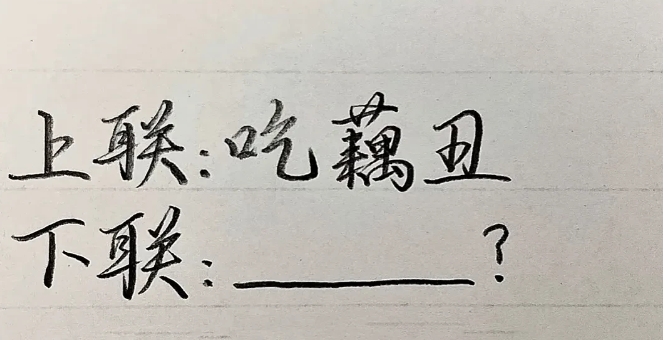 上联:吃藕丑
下联:______?